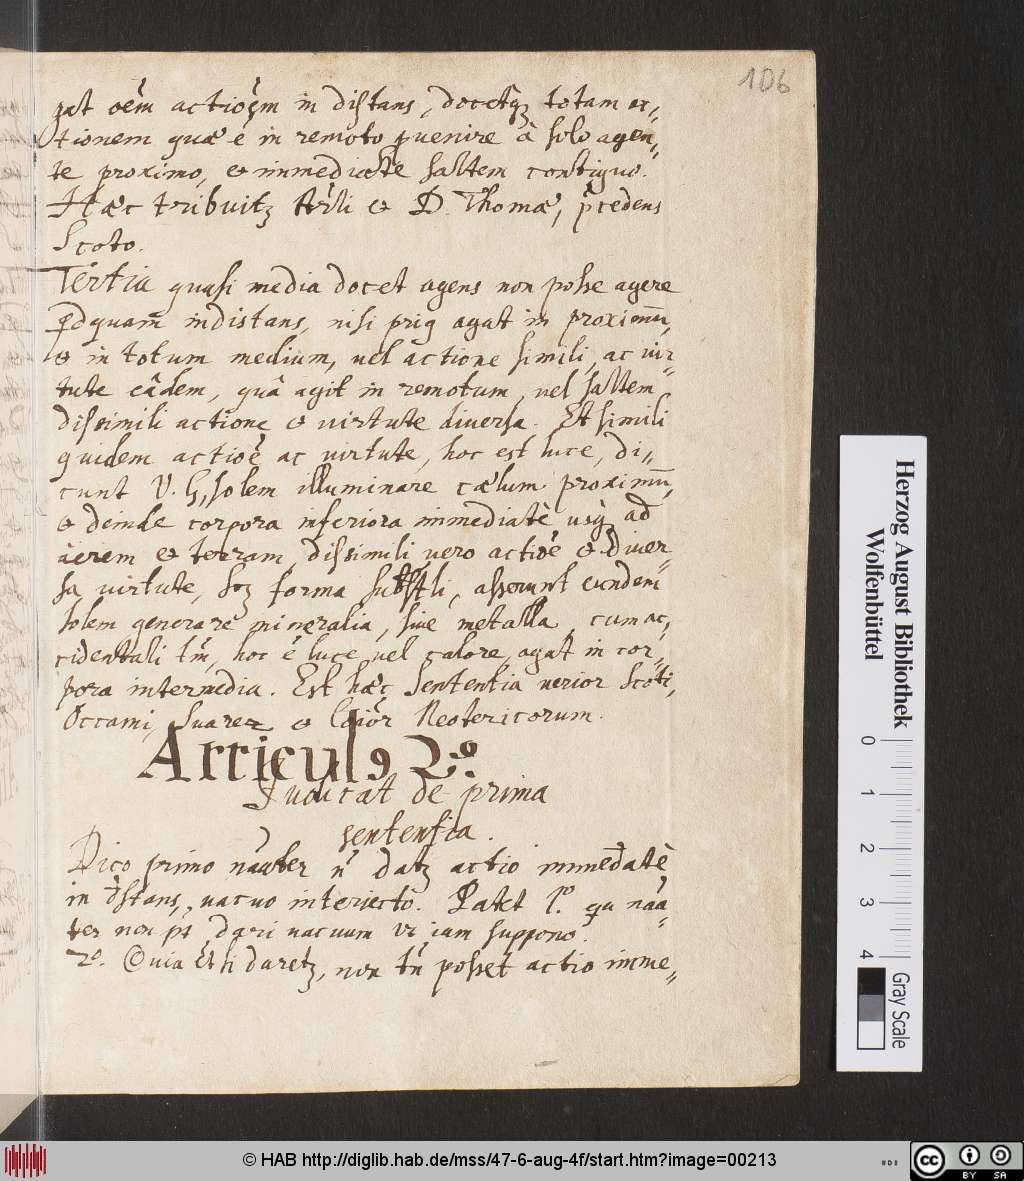 106
gat oēm actiōēm in distans, docetq̃ꝫ totam ac„
tionem quæ ē in remoto ꝓvenire à solo agen„
te proximo, & immediatè saltem contiguo.
Hæc tribuitꝫ Ar̃li & D. Thomæ,
Scoto.
Tertia quasi media docet agens non posse agere
indistans, nisi priꝰ agat in proximū,
& in totum medium, vel actione simili, ac vir„
tute eâdem, quâ agit in remotum, vel saltem
dissimili actione & virtute diversa. Et simili
quidem actiōē ac virtute, hoc est luce, di„
cunt V. G., solem illuminare cælum proximū,
& deinde corpora inferiora immediatè usq̃ ad
aerem & terram, dissimili vero actiōē & diver„
sa virtute, forma asserunt eundem
solem generare mineralia, sive metalla, cum ac„
cidentali tm̃, hoc ē luce vel calore agat in cor„
pora intermedia. Est hæc sententia verior Scoti,
Occami, Suarez & Neotericorum.
Articulꝰ 2.ꝰ
Judicat de prima
sententia.
Dico primo nãłter ñ datꝫ actio immediatè
in distans, vacuo interjecto. Patet 1.º qu nãã„
ter non pt dari vacuum ut iam suppono.
2.º Quia etsi daretꝫ, non tñ posset actio imme„
Herzog August Bibliothek
Wolfenbüttel
0 1 2 3 4
Gray Scale
© HAB http://diglib.hab.de/mss/47-6-aug-4f/start.htm?image=00213
cc BY SA